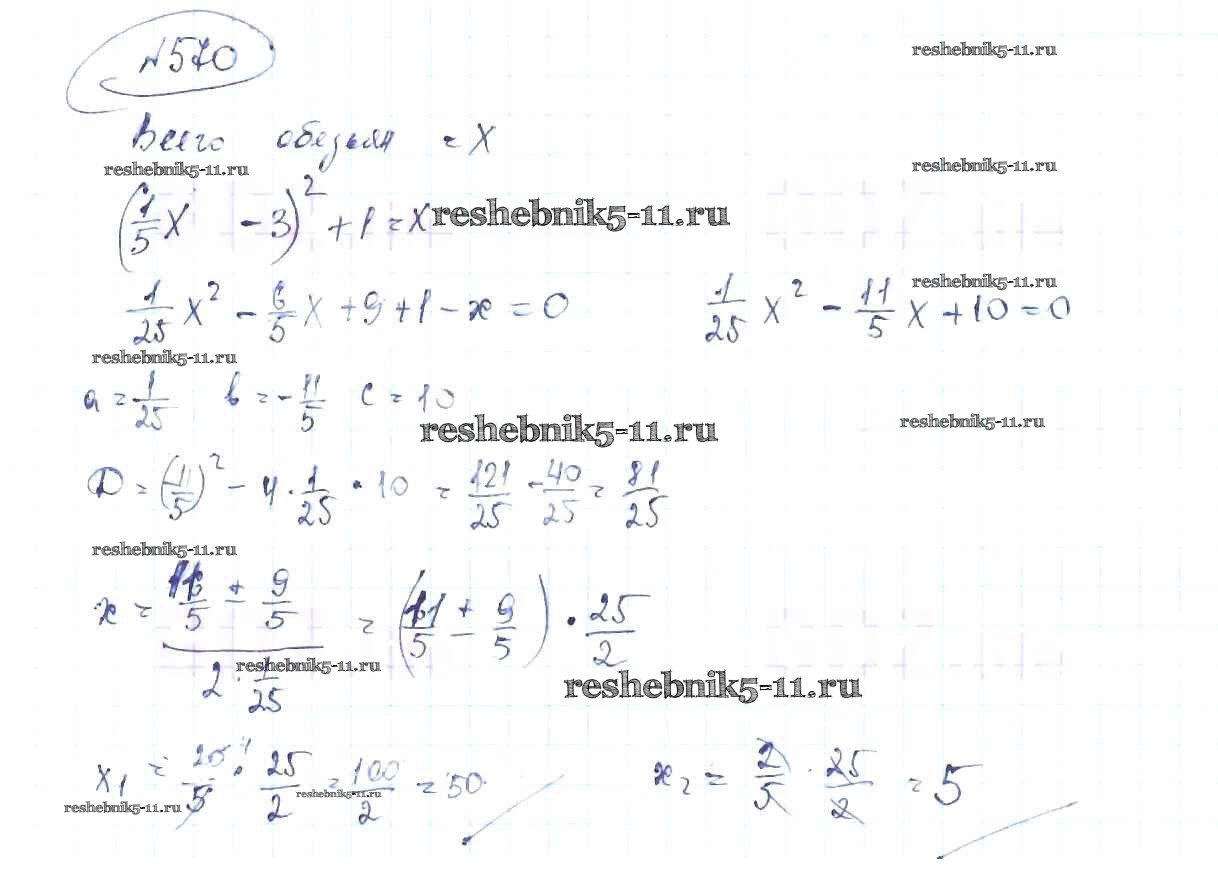 №570
reshebnik5-11.ru
Всего обезьян = X
reshebnik5-11.ru
reshebnik5-11.ru
(1/5 X - 3)² + 1 = X
reshebnik5-11.ru
1/25 X² - 6/5 X + 9 + 1 - x = 0
reshebnik5-11.ru
1/25 X² - 11/5 X + 10 = 0
reshebnik5-11.ru
a = 1/25 b = - 11/5 c = 10
reshebnik5-11.ru
reshebnik5-11.ru
D = (11/5)² - 4 · 1/25 · 10 = 121/25 - 40/25 = 81/25
reshebnik5-11.ru
x = (11/5 ± 9/5) / (2 · 1/25) = (11/5 ± 9/5) · 25/2
reshebnik5-11.ru
reshebnik5-11.ru
x₁ = 20/5 · 25/2 = 100/2 = 50
reshebnik5-11.ru
reshebnik5-11.ru
x₂ = 2/5 · 25/2 = 5